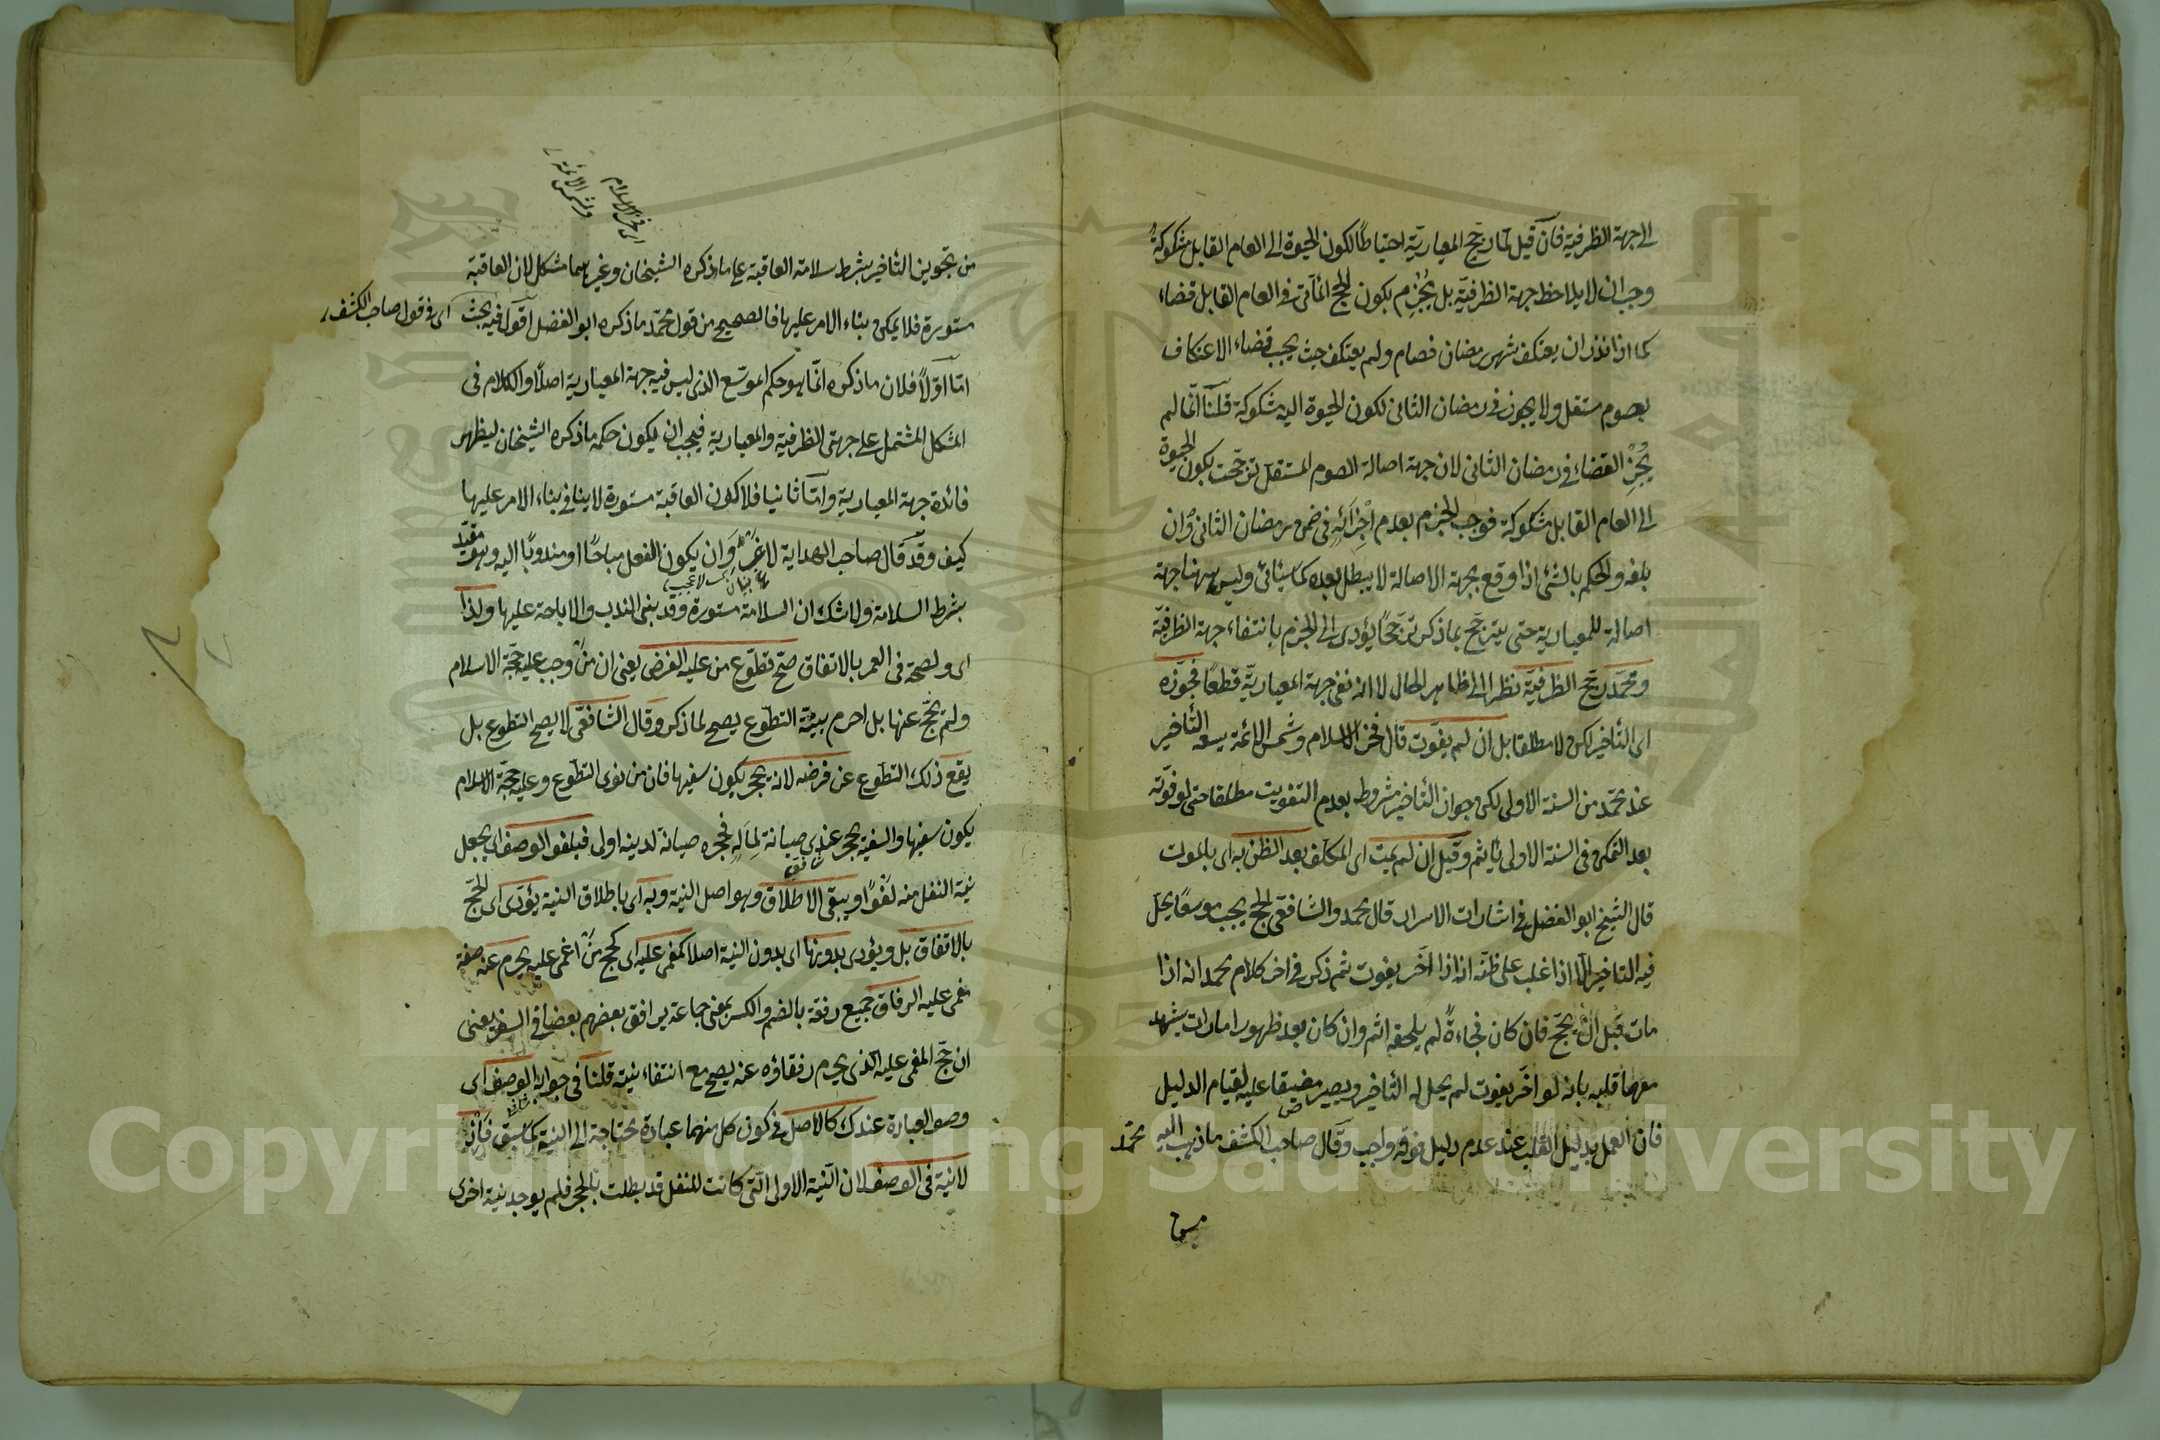 الى جهة الظرفية فان قيل لما رجح المعيارية احتياطا لكون الحيوة الى العام القابل مشكوكة
وجب ان لا يلاحظ جهة الظرفية بل يجزم بكون الحج المأتى فى العام القابل قضاء
كما اذا نذر ان يعتكف شهر رمضان فصام ولم يعتكف حيث يجب قضاء الاعتكاف
بصوم مستقل ولا يجوز فى رمضان الثانى لكون الحيوة اليه مشكوكة قلنا انما لم
يُجْزِ القضاء فى رمضان الثانى لان جهة اصالة الصوم المستقل ترجحت بكون الحيوة
الى العام القابل مشكوكة فوجب الجزم بعدم اجزائه فى ضمن رمضان الثانى وان
بلغه والحكم بالشئ اذا وقع بجهة الاصالة لا يبطل بعده كما سيأتى وليس ههنا جهة
اصالة للمعيارية حتى يترجح بما ذكر ترجحا يؤدى الى الجزم بانتفاء جهة الظرفية
ومحمد رجح الظرفية نظرا الى ظاهر الحال لا انه نفى جهة المعيارية قطعا فجوزه
اى التأخير لكن لا مطلقا بل ان لم يفوت قال فخر الاسلام وشمس الائمة يسعه التأخير
عند محمد من السنة الاولى لكن جواز التأخير مشروط بعدم التفويت مطلقا حتى لو فوته
بعد التمكن فى السنة الاولى يأثم وقيل ان لم يمت اى المكلف بعد الظن به اى بالموت
قال الشيخ ابو الفضل فى اشارات الاسرار قال محمد والشافعى الحج يجب موسعا يحل
فيه التاخير الا اذا غلب على ظنه انه اذا اخر يفوت ثم ذكر فى اخر كلام محمد انه اذا
مات قبل ان يحج فان كان فجاءة لم يلحقه اثم وان كان بعد ظهور امارات يشهد
معها قلبه بانه لو اخر يفوت لم يحل له التأخير ويصير مضيقا عليه لقيام الدليل
فان العمل بدليل القلب عند عدم دليل فوقه واجب وقال صاحب الكشف ما ذهب اليه محمد
من
اى فخر الاسلام
وشمس الائمة
من تجويز التأخير بشرط سلامة العاقبة على ما ذكره الشيخان وغيرهما مشكل لان العاقبة
مستورة فلا يمكن بناء الامر عليها فالصحيح من قول محمد ما ذكره ابو الفضل اقول فيه بحث
اى فى قول صاحب الكشف
اما اولا فلان ما ذكره انما هو حكم الموسع الذى ليس فيه جهة المعيارية اصلا والكلام فى
المشكل المشتمل على جهتى الظرفية والمعيارية فيجب ان يكون حكمه ما ذكره الشيخان ليظهر
فائدة جهة المعيارية واما ثانيا فلان كون العاقبة مستورة لا ينافى بناء الامر عليها
كيف وقد قال صاحب الهداية لا غرو ان يكون الفعل مباحا او مندوبا اليه وهو مقيد
بشرط السلامة ولا شك ان السلامة مستورة وقد بنى الندب والاباحة عليها ولذا
اى ولصحته فى العمر بالاتفاق صح تطوع من عليه الفرض يعنى ان من وجب عليه حجة الاسلام
ولم يحج عنها بل احرم بنية التطوع يصح لما ذكر وقال الشافعى لا يصح التطوع بل
يقع ذلك التطوع عن فرضه لانه يحجر بكون سفيها فان من نوى التطوع وعليه حجة الاسلام
يكون سفيها والسفيه يحجر عندى صيانة لماله فحجره صيانة لدينه اولى فيلغو الوصف اى يجعل
نية النفل منه لغوا ويبقى الاطلاق وهو اصل النية وبه اى باطلاق النية يؤدى اى الحج
بالاتفاق بل ويؤدى بدونها اى بدون النية اصلا كمغمى عليه اى كحج من اغمى عليه يحرم عنه صفة
مغمى عليه الرفاق جميع رفقة بالضم والكسر بمعنى جماعة يرافق بعضهم بعضا فى السفر يعنى
ان حج المغمى عليه الذى يحرم رفقاؤه عنه يصح مع انتفاء نيته قلنا فى جوابه الوصف اى
وصف العبادة عندك كالاصل فى كون كل منهما عبادة محتاجة الى النية كما سبق
لا نية فى الوصف لان النية الاولى التى كانت للنفل قد بطلت بالحجر فلم يوجد نية اخرى
Copyright © King Saud University